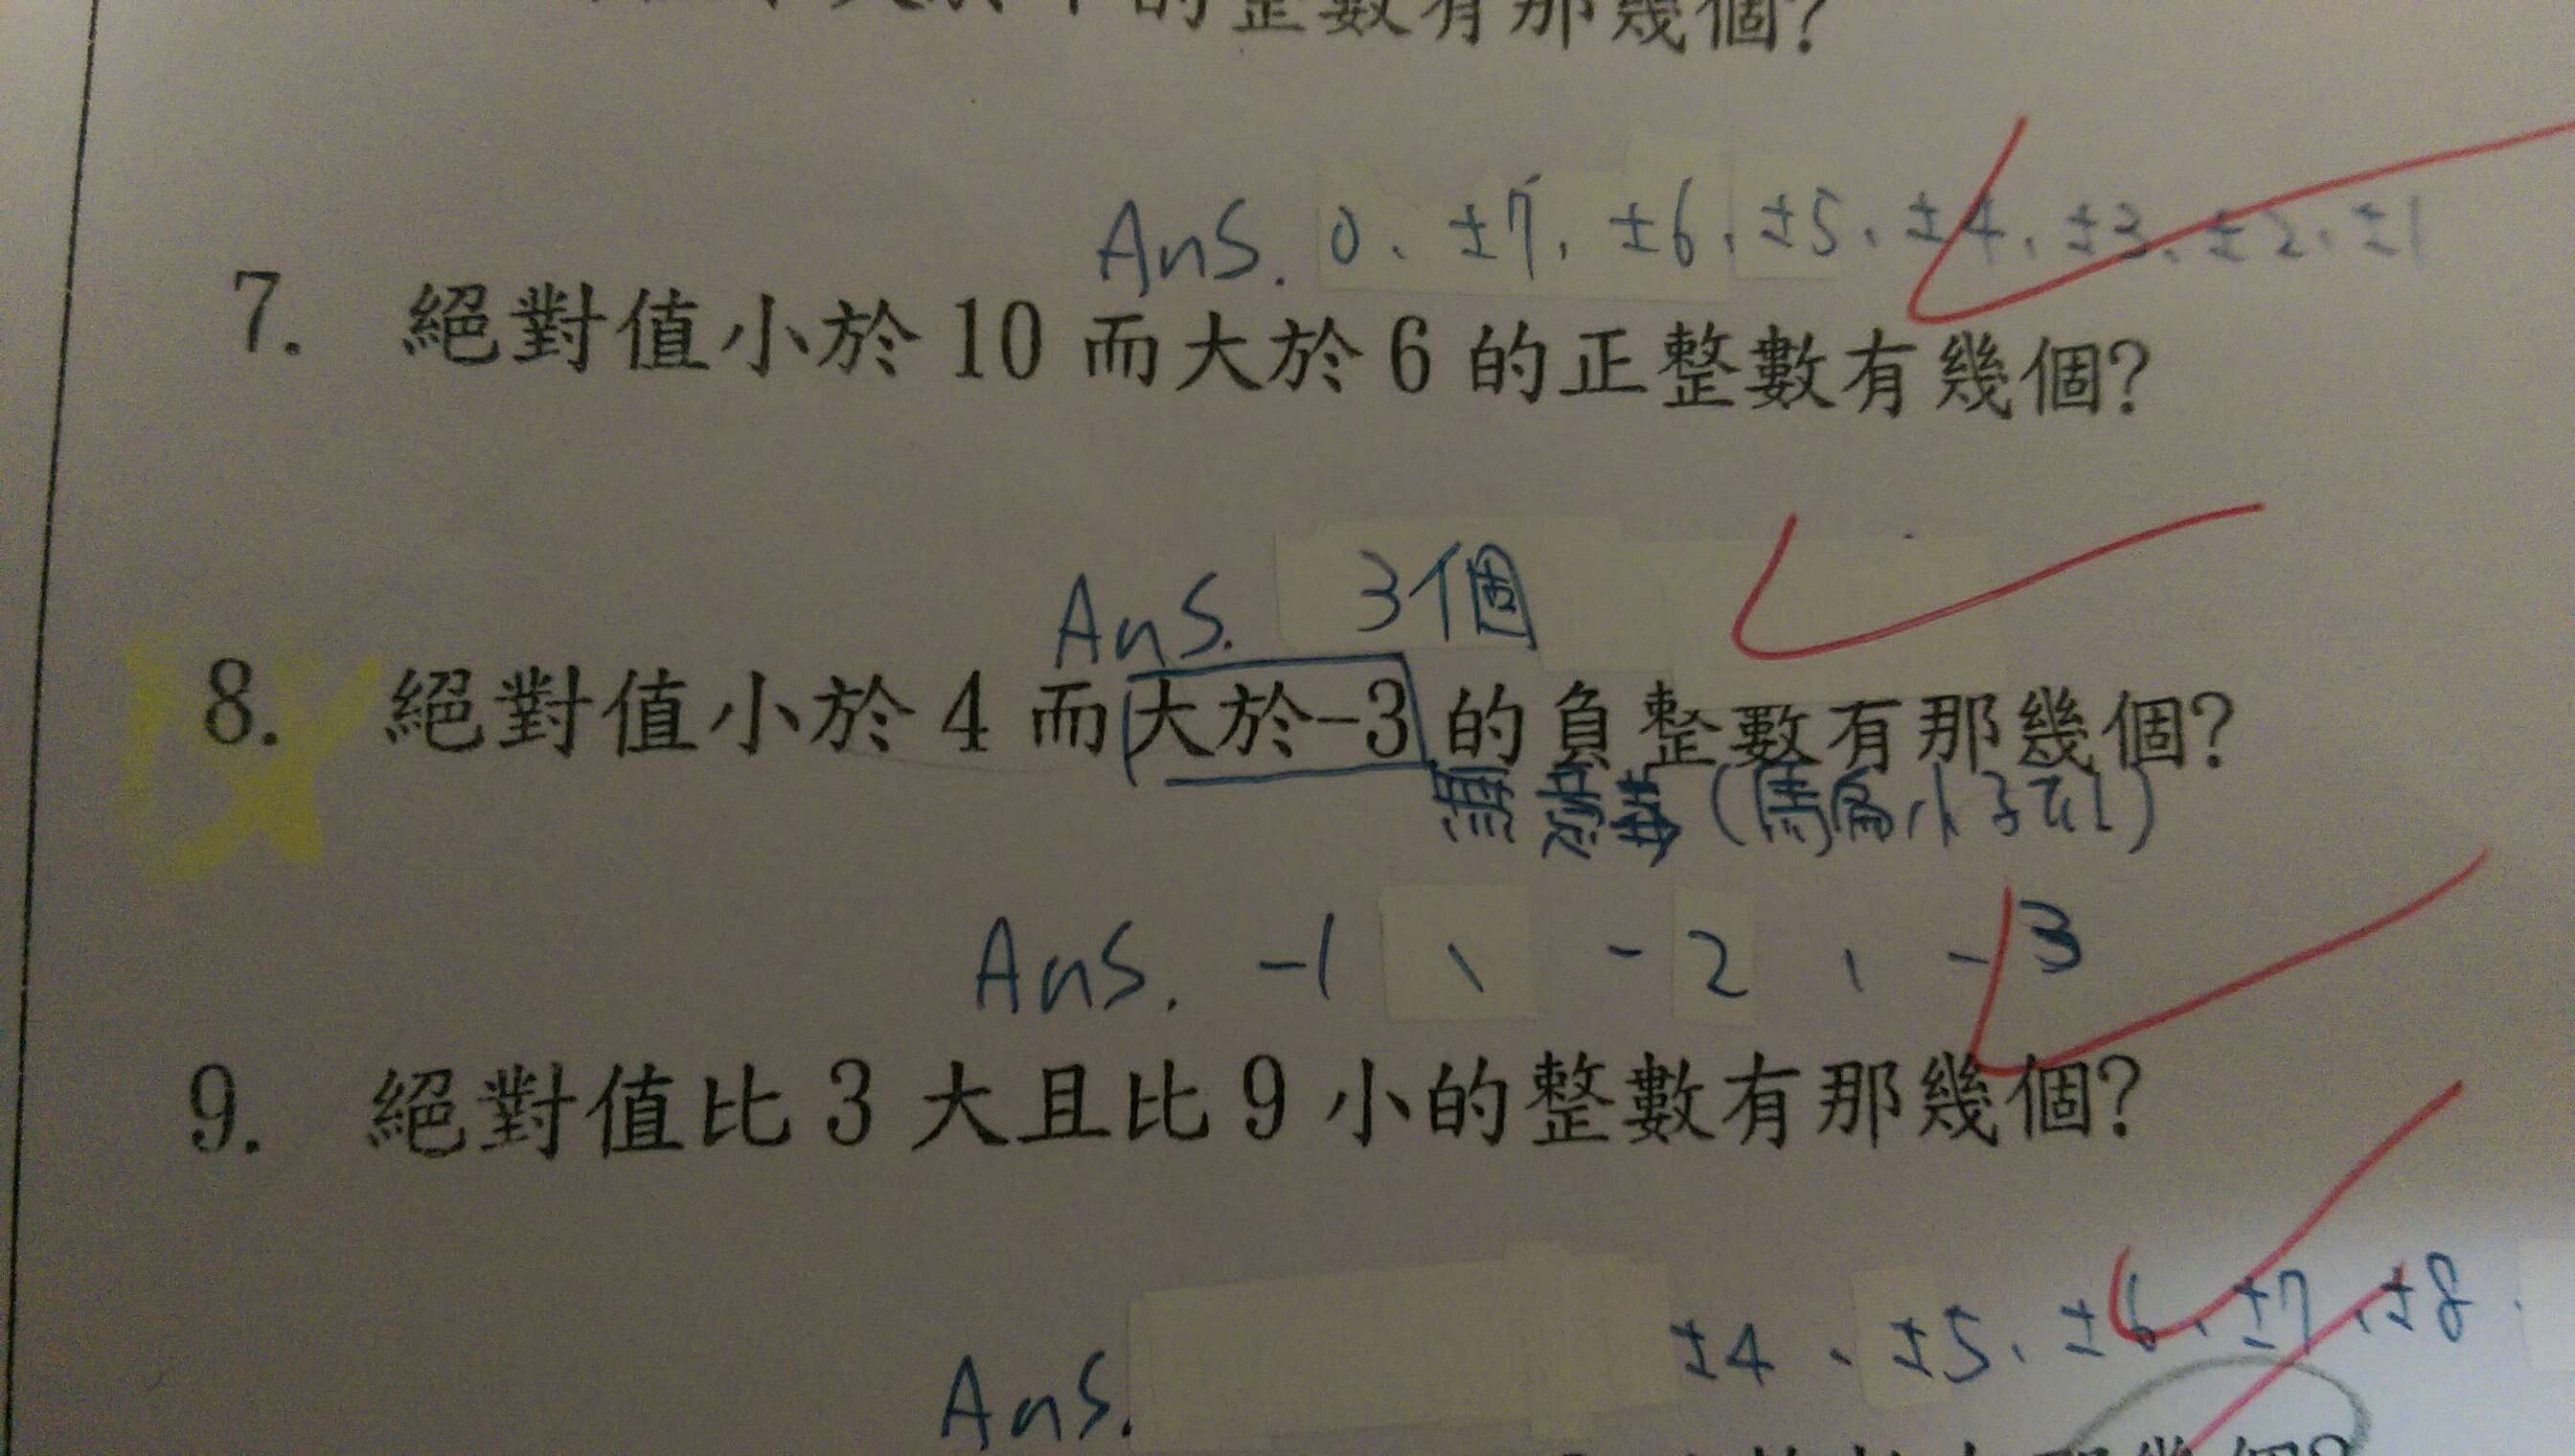 的整數有那幾個?
Ans. 0、±7、±6、±5、±4、±3、±2、±1
7. 絕對值小於 10 而大於 6 的正整數有幾個?
Ans. 3個
8. 絕對值小於 4 而大於-3 的負整數有那幾個?
無意義
Ans. -1、-2、-3
9. 絕對值比 3 大且比 9 小的整數有那幾個?
Ans. ±4、±5、±6、±7、±8